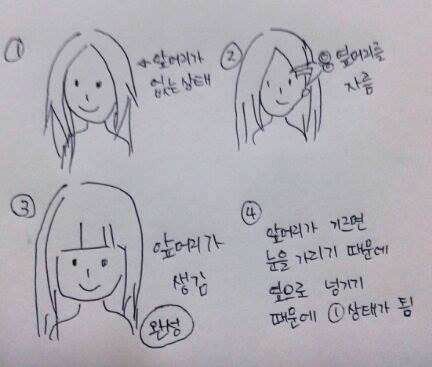 ①
←앞머리가
없는상태
②
옆머리를
자름
③
앞머리가
생김
완성
④
앞머리가 기르면
눈을 가리기 때문에
옆으로 넘기기
때문에 ①상태가 됨